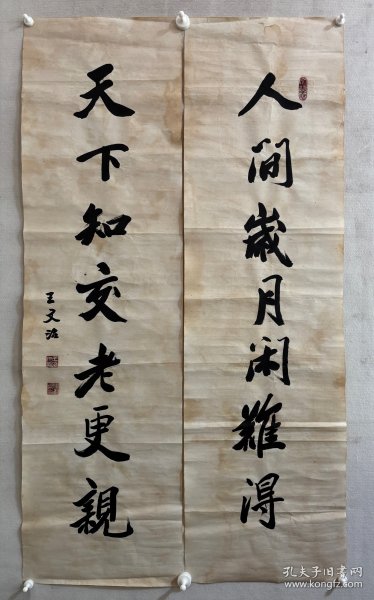 人間歲月闲難淂
天下知交老更親
王文治
孔夫子旧书网
www.kongfz.com